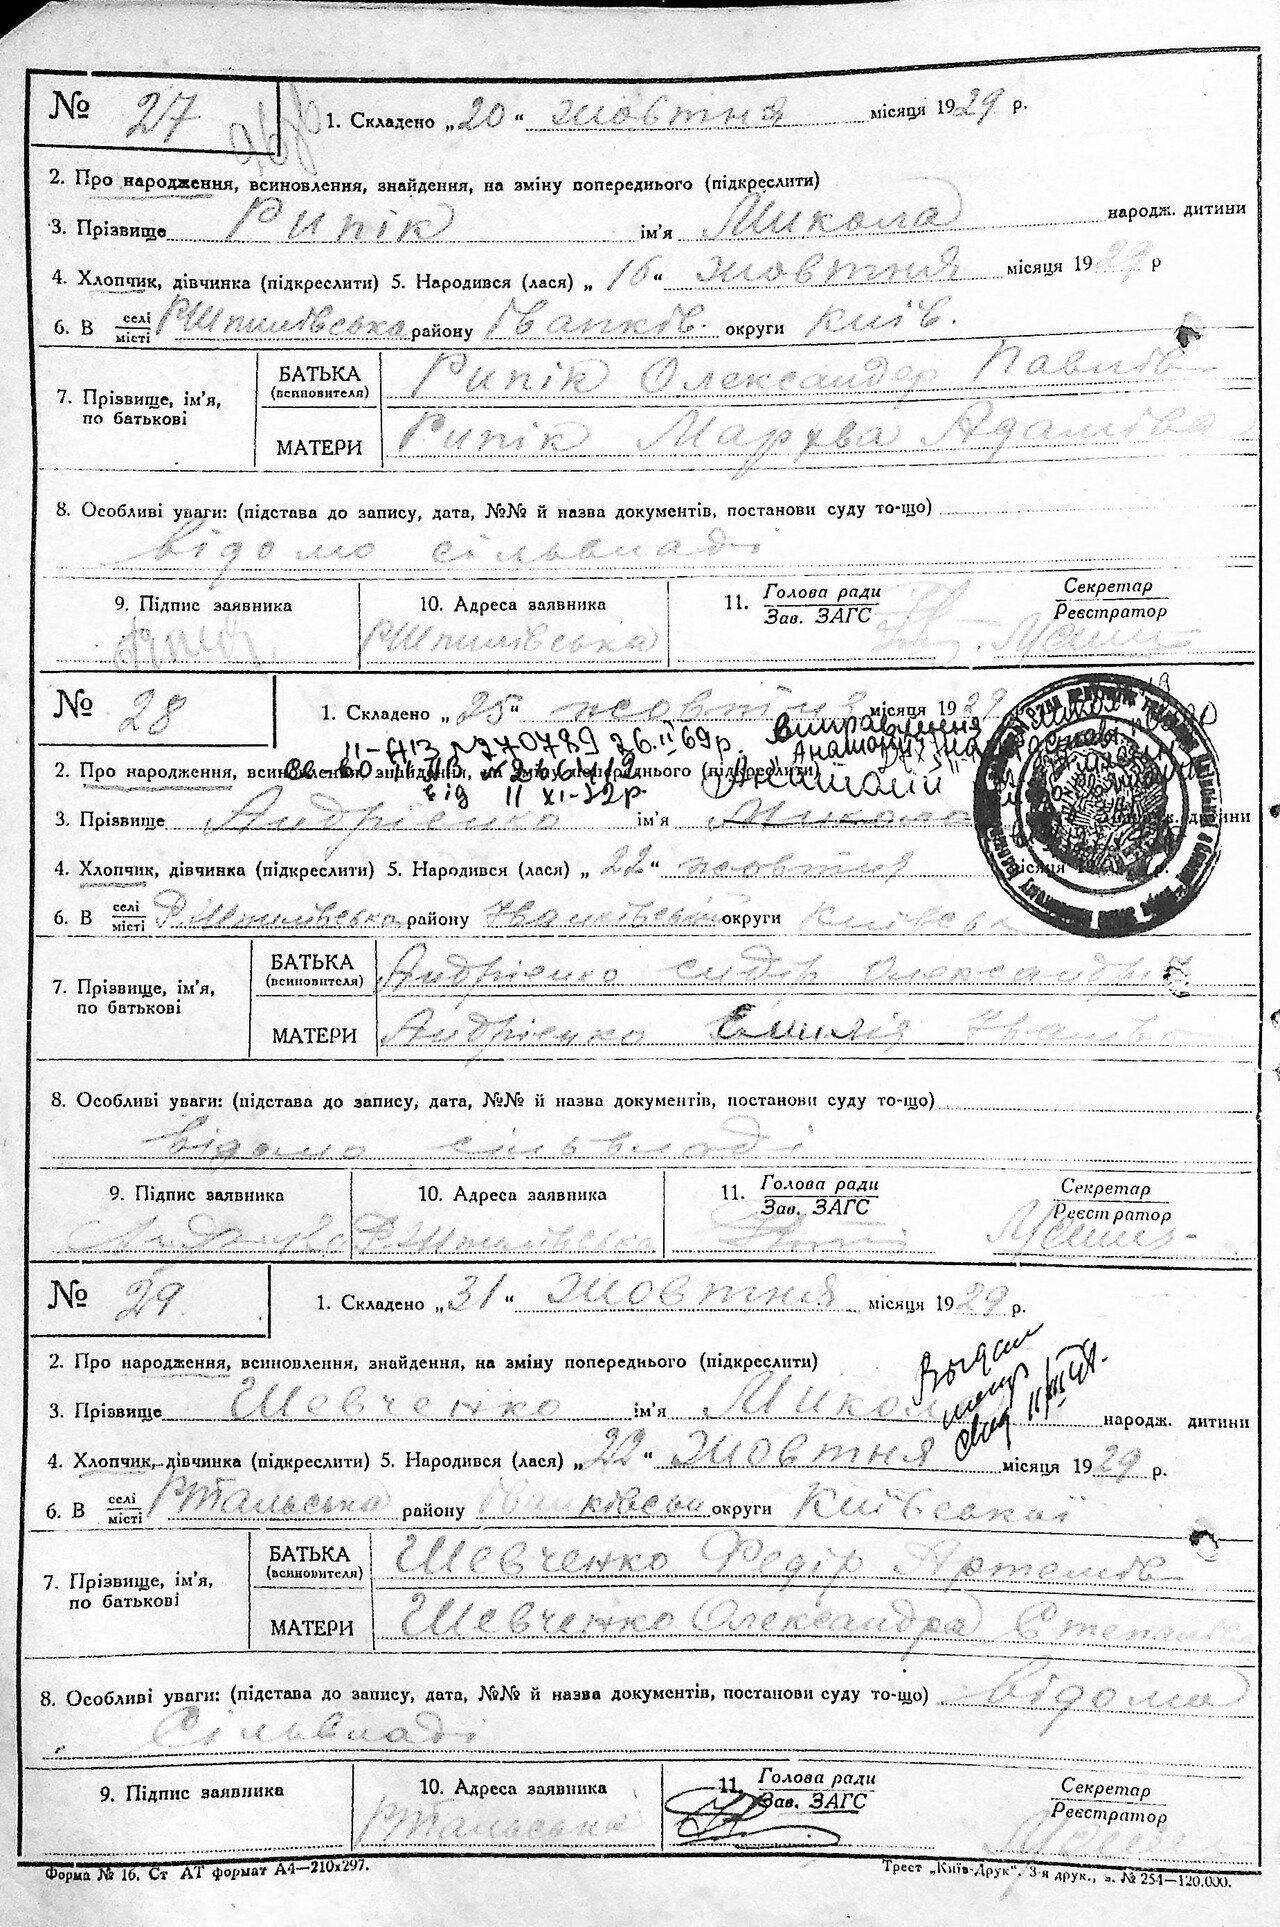 № 27
1. Складено „20“ жовтня місяця 1929 р.
2. Про народження, всиновлення, знайдення, на зміну попереднього (підкреслити)
3. Прізвище Рипік ім'я Микола народж. дитини
4. Хлопчик, дівчинка (підкреслити) 5. Народився (лася) „16“ жовтня місяця 1929 р
6. В селі місті Р.Шпилівська району Іванків. округи Київ.
7. Прізвище, ім'я, по батькові
БАТЬКА (всиновителя) Рипік Олександер Павлів
МАТЕРИ Рипік Мархва Адамівна
8. Особливі уваги: (підстава до запису, дата, №№ й назва документів, постанови суду то-що)
відомо сільвладі
9. Підпис заявника
10. Адреса заявника
11. Голова ради Зав. ЗАГС
Секретар Реєстратор
Р.Шпилівська
№ 28
1. Складено „25“ жовтня місяця 1929
II-АПЗ №270789 26.II 69р. Виправлення
2. Про народження, всиновлення, знайдення, на зміну попереднього (підкреслити)
від II XI-72р. Анатолій
3. Прізвище Андрієнко ім'я Микола дитини
4. Хлопчик, дівчинка (підкреслити) 5. Народився (лася) „22“ жовтня місяця
6. В селі місті Р.Шпилівська району Іванківській округи Київськ
7. Прізвище, ім'я, по батькові
БАТЬКА (всиновителя) Андрієнко Сидір Олександрів
МАТЕРИ Андрієнко Емилія Іванів
8. Особливі уваги: (підстава до запису, дата, №№ й назва документів, постанови суду то-що)
відомо сільвладі
9. Підпис заявника
10. Адреса заявника
11. Голова ради Зав. ЗАГС
Секретар Реєстратор
Р.Шпилівська
№ 29
1. Складено „31“ жовтня місяця 1929 р.
2. Про народження, всиновлення, знайдення, на зміну попереднього (підкреслити)
Выдан
3. Прізвище Шевченко ім'я Микола народж. дитини
4. Хлопчик, дівчинка (підкреслити) 5. Народився (лася) „22“ жовтня місяця 1929 р.
6. В селі місті Р.Тальська району Іванківськи округи Київської
7. Прізвище, ім'я, по батькові
БАТЬКА (всиновителя) Шевченко Федір Артемів
МАТЕРИ Шевченко Олександра Степанівна
8. Особливі уваги: (підстава до запису, дата, №№ й назва документів, постанови суду то-що) відомо
Сільвладі
9. Підпис заявника
10. Адреса заявника
11. Голова ради Зав. ЗАГС
Секретар Реєстратор
Р.Тальська
Форма № 16. Ст АТ формат А4—210х297.
Трест „Київ-Друк“. 3-я друк., з. № 254—120.000.